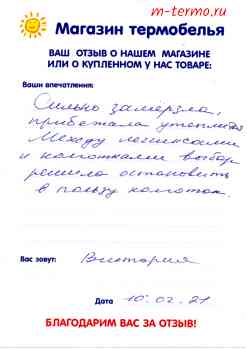 m-termo.ru
Магазин термобелья
ВАШ ОТЗЫВ О НАШЕМ МАГАЗИНЕ
ИЛИ О КУПЛЕННОМ У НАС ТОВАРЕ:
Ваши впечатления:
Сильно замерзла,
прибежала утеплиться
Между легинсами
и колготками выбор
решила остановить
в пользу колготок.
Вас зовут: Виктория
Дата 10.02.21
БЛАГОДАРИМ ВАС ЗА ОТЗЫВ!